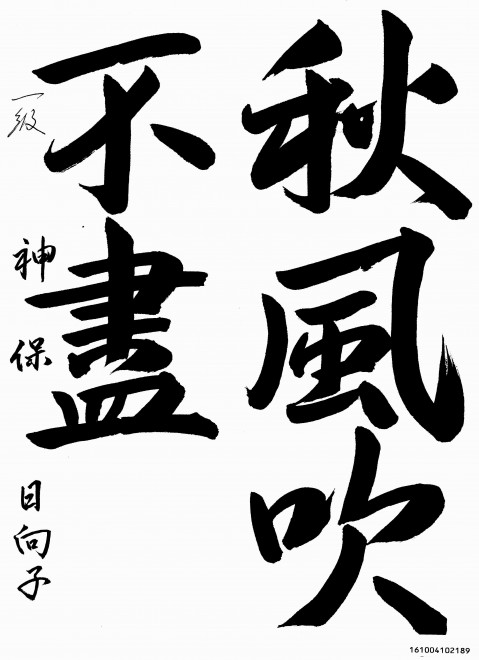 秋風吹
不盡
一級
神保 日向子
161004102189